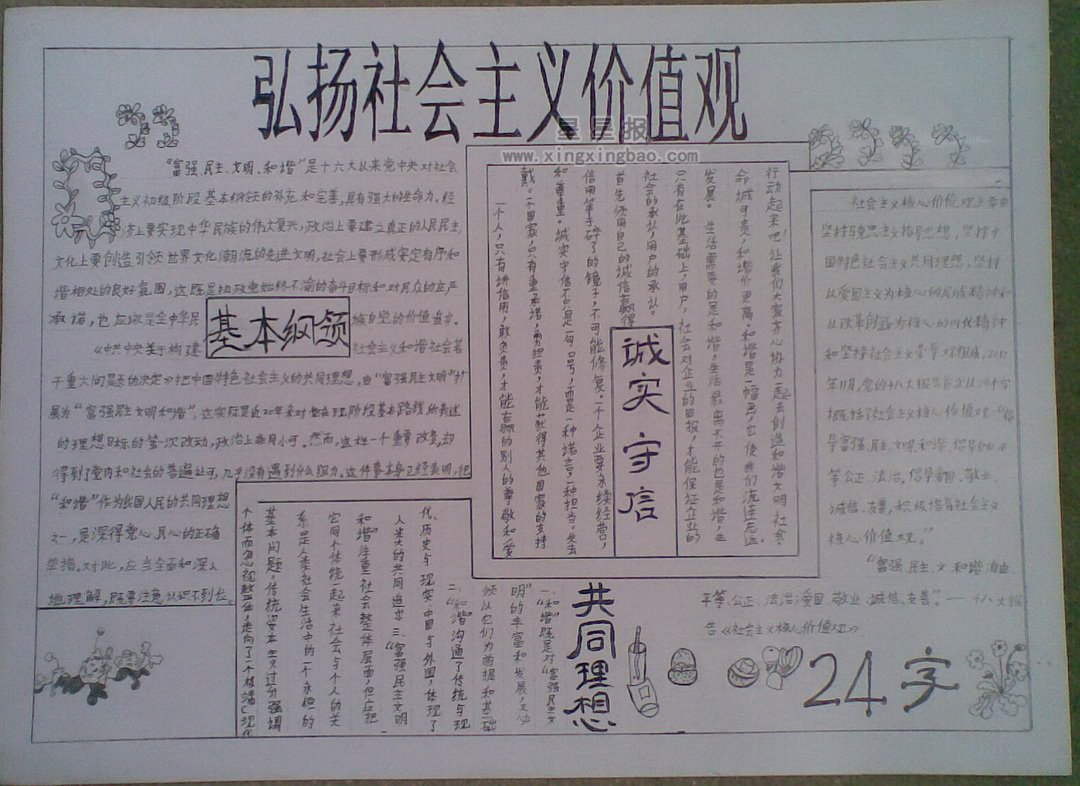 弘扬社会主义价值观
星星报
www.xingxingbao.com
“富强、民主、文明、和谐”是十六大从来党中央对社会
主义初级阶段基本纲领的补充和完善,具有强大的生命力。经
济上要实现中华民族的伟大复兴,政治上要建立真正的人民民主,
文化上要创造引领世界文化潮流的先进文明,社会上要形成安定有序和
谐相处的良好氛围。这既是执政党始终不渝的奋斗目标和对民众的庄严
承诺,也应该是全中华民族自觉的价值追求。
基本纲领
《中共中央关于构建社会主义和谐社会若
干重大问题的决定》把中国特色社会主义的共同理想,由“富强民主文明”扩
展为“富强民主文明和谐”。这实际是近20年来对
的理想目标的第一次改动,政治上非同小可。然而,这样一个重要改变,却
得到了党内和社会的普遍认可,几乎没有遇到什么阻力。这件事本身已经表明,把
“和谐”作为我国人民的共同理想
之一,是深得党心、民心的正确
举措。对此,应当全面和深入
地理解,既要注意认识不到长。
行动起来吧!让我们大家齐心协力一起去创造和谐文明社会。
命诚可贵,和谐价更高。和谐是一幅画,它使我们流连忘返
发展。生活需要的是和谐,生活最离不开的也是和谐,生
只有在此基础上,用户、社会对企业的回报,才能保证企业的
社会的承认,用户的承认。
首先须用自己的诚信赢得
信用等于碎了的镜子,不可能修复。一个企业要永续经营,
和尊重。诚实守信不只是一句口号,而是一种诺言,一种担当。失去
戴。一个国家,只有重承诺,勇担责,才能获得其他国家的支持
一个人,只有讲信用,敢负责,才能赢得别人的尊敬和爱
诚实守信
共同理想
一、“和谐”既是对“富强民主文
明”的丰富和发展,又必
须以它们为前提和基础
二、“和谐”沟通了传统与现
代、历史与现实、中国与外国,体现了
人类的共同追求 三、“富强民主文明
和谐”注重社会的整体层面,但应把
它同个体统一起来。社会与个人的关
系,是人类社会生活中的一个永恒的
基本问题。传统资本主义过分强调
个体而忽视整体,走向了一个极端。现代
社会主义核心价值观主要内
坚持马克思主义指导思想,坚持中
国特色社会主义共同理想,坚持
从爱国主义为核心的民族精神和
从改革创新为核心的时代精神
和坚持社会主义荣辱观组成,2012
年11月,党的十八大报告首次从24个字
概括了社会主义核心价值观:“倡
导富强、民主、文明、和谐,倡导自由、平
等、公正、法治,倡导爱国、敬业
、诚信、友善,积极培育社会主义
核心价值观。”
“富强、民主、文、和谐、自由、
平等、公正、法治、爱国、敬业、诚信、友善”。——十八大报
告《社会主义核心价值观》
24字